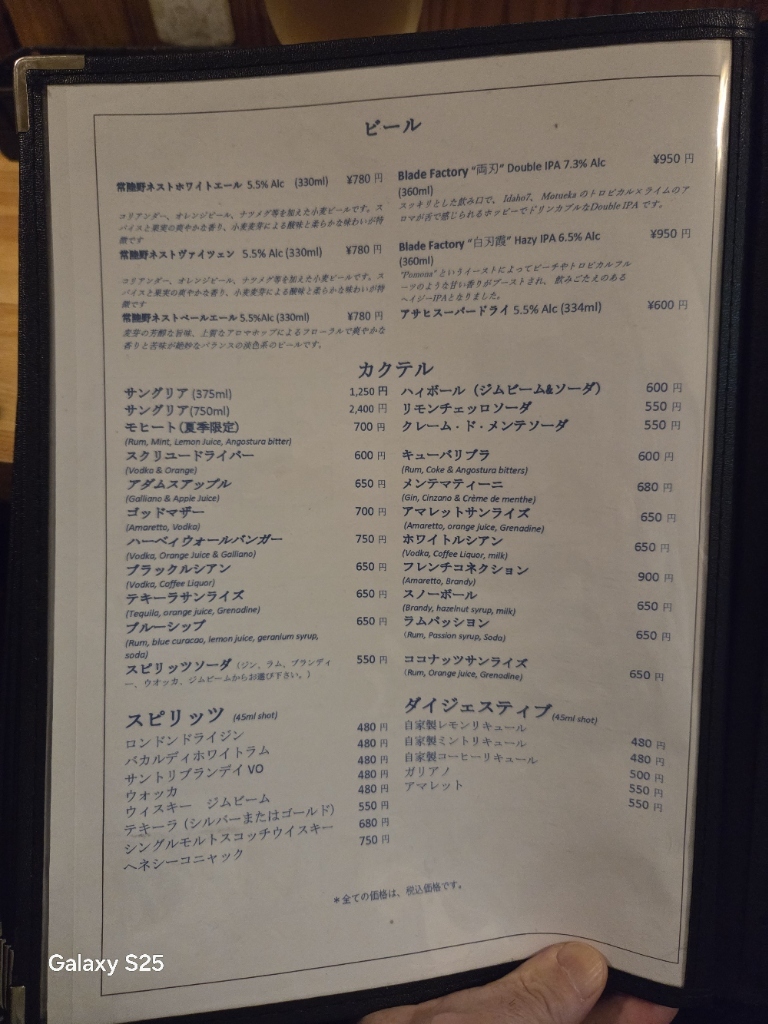 ビール
常陸野ネストホワイトエール 5.5% Alc (330ml) ¥780 円
コリアンダー、オレンジピール、ナツメグ等を加えた小麦ビールです。ス
パイスと果実の爽やかな香り、小麦麦芽による酸味と柔らかな味わいが特
徴です
常陸野ネストヴァイツェン 5.5% Alc (330ml) ¥780 円
コリアンダー、オレンジピール、ナツメグ等を加えた小麦ビールです。ス
パイスと果実の爽やかな香り、小麦麦芽による酸味と柔らかな味わいが特
徴です
常陸野ネストペールエール 5.5%Alc (330ml) ¥780 円
麦芽の芳醇な旨味、上質なアロマホップによるフローラルで爽やかな
香りと苦味が絶妙なバランスの淡色系のビールです。
Blade Factory “両刃” Double IPA 7.3% Alc ¥950 円
(360ml)
スッキリとした飲み口で、 Idaho7、 Motueka のトロピカル×ライムのア
ロマが舌で感じられるホッピーでドリンカブルなDouble IPA です。
Blade Factory “白刃霞” Hazy IPA 6.5% Alc ¥950 円
(360ml)
"Pomona" というイーストによってピーチやトロピカルフル
ーツのような甘い香りがブーストされ、 飲みごたえのある
ヘイジーIPAとなりました。
アサヒスーパードライ 5.5% Alc (334ml) ¥600 円
カクテル
サングリア (375ml) 1,250 円
サングリア(750ml) 2,400 円
モヒート（夏季限定） 700 円
(Rum, Mint, Lemon Juice, Angostura bitter)
スクリュードライバー 600 円
(Vodka & Orange)
アダムスアップル 650 円
(Galliano & Apple Juice)
ゴッドマザー 700 円
(Amaretto, Vodka)
ハーベィウォールバンガー 750 円
(Vodka, Orange Juice & Galliano)
ブラックルシアン 650 円
(Vodka, Coffee Liquor)
テキーラサンライズ 650 円
(Tequila, orange juice, Grenadine)
ブルーシップ 650 円
(Rum, blue curacao, lemon juice, geranium syrup,
soda)
スピリッツソーダ（ジン、ラム、ブランディ 550 円
ー、ウオッカ、ジムビームからお選び下さい。）
ハィボール（ジムビーム&ソーダ） 600 円
リモンチェッロソーダ 550 円
クレーム・ド・メンテソーダ 550 円
キューバリブラ 600 円
(Rum, Coke & Angostura bitters)
メンテマティーニ 680 円
(Gin, Cinzano & Crème de menthe)
アマレットサンライズ 650 円
(Amaretto, orange juice, Grenadine)
ホワイトルシアン 650 円
(Vodka, Coffee Liquor, milk)
フレンチコネクション 900 円
(Amaretto, Brandy)
スノーボール 650 円
(Brandy, hazelnut syrup, milk)
ラムパッション 650 円
(Rum, Passion syrup, Soda)
ココナッツサンライズ 650 円
(Rum, Orange juice, Grenadine)
スピリッツ (45ml shot)
ロンドンドライジン 480 円
バカルディホワイトラム 480 円
サントリブランデイ VO 480 円
ウォッカ 480 円
ウィスキー ジムビーム 480 円
テキーラ（シルバーまたはゴールド） 550 円
シングルモルトスコッチウイスキー 680 円
ヘネシーコニャック 750 円
ダイジェスティブ (45ml shot)
自家製レモンリキュール 480 円
自家製ミントリキュール 480 円
自家製コーヒーリキュール 500 円
ガリアノ 550 円
アマレット 550 円
＊全ての価格は、税込価格です。
Galaxy S25